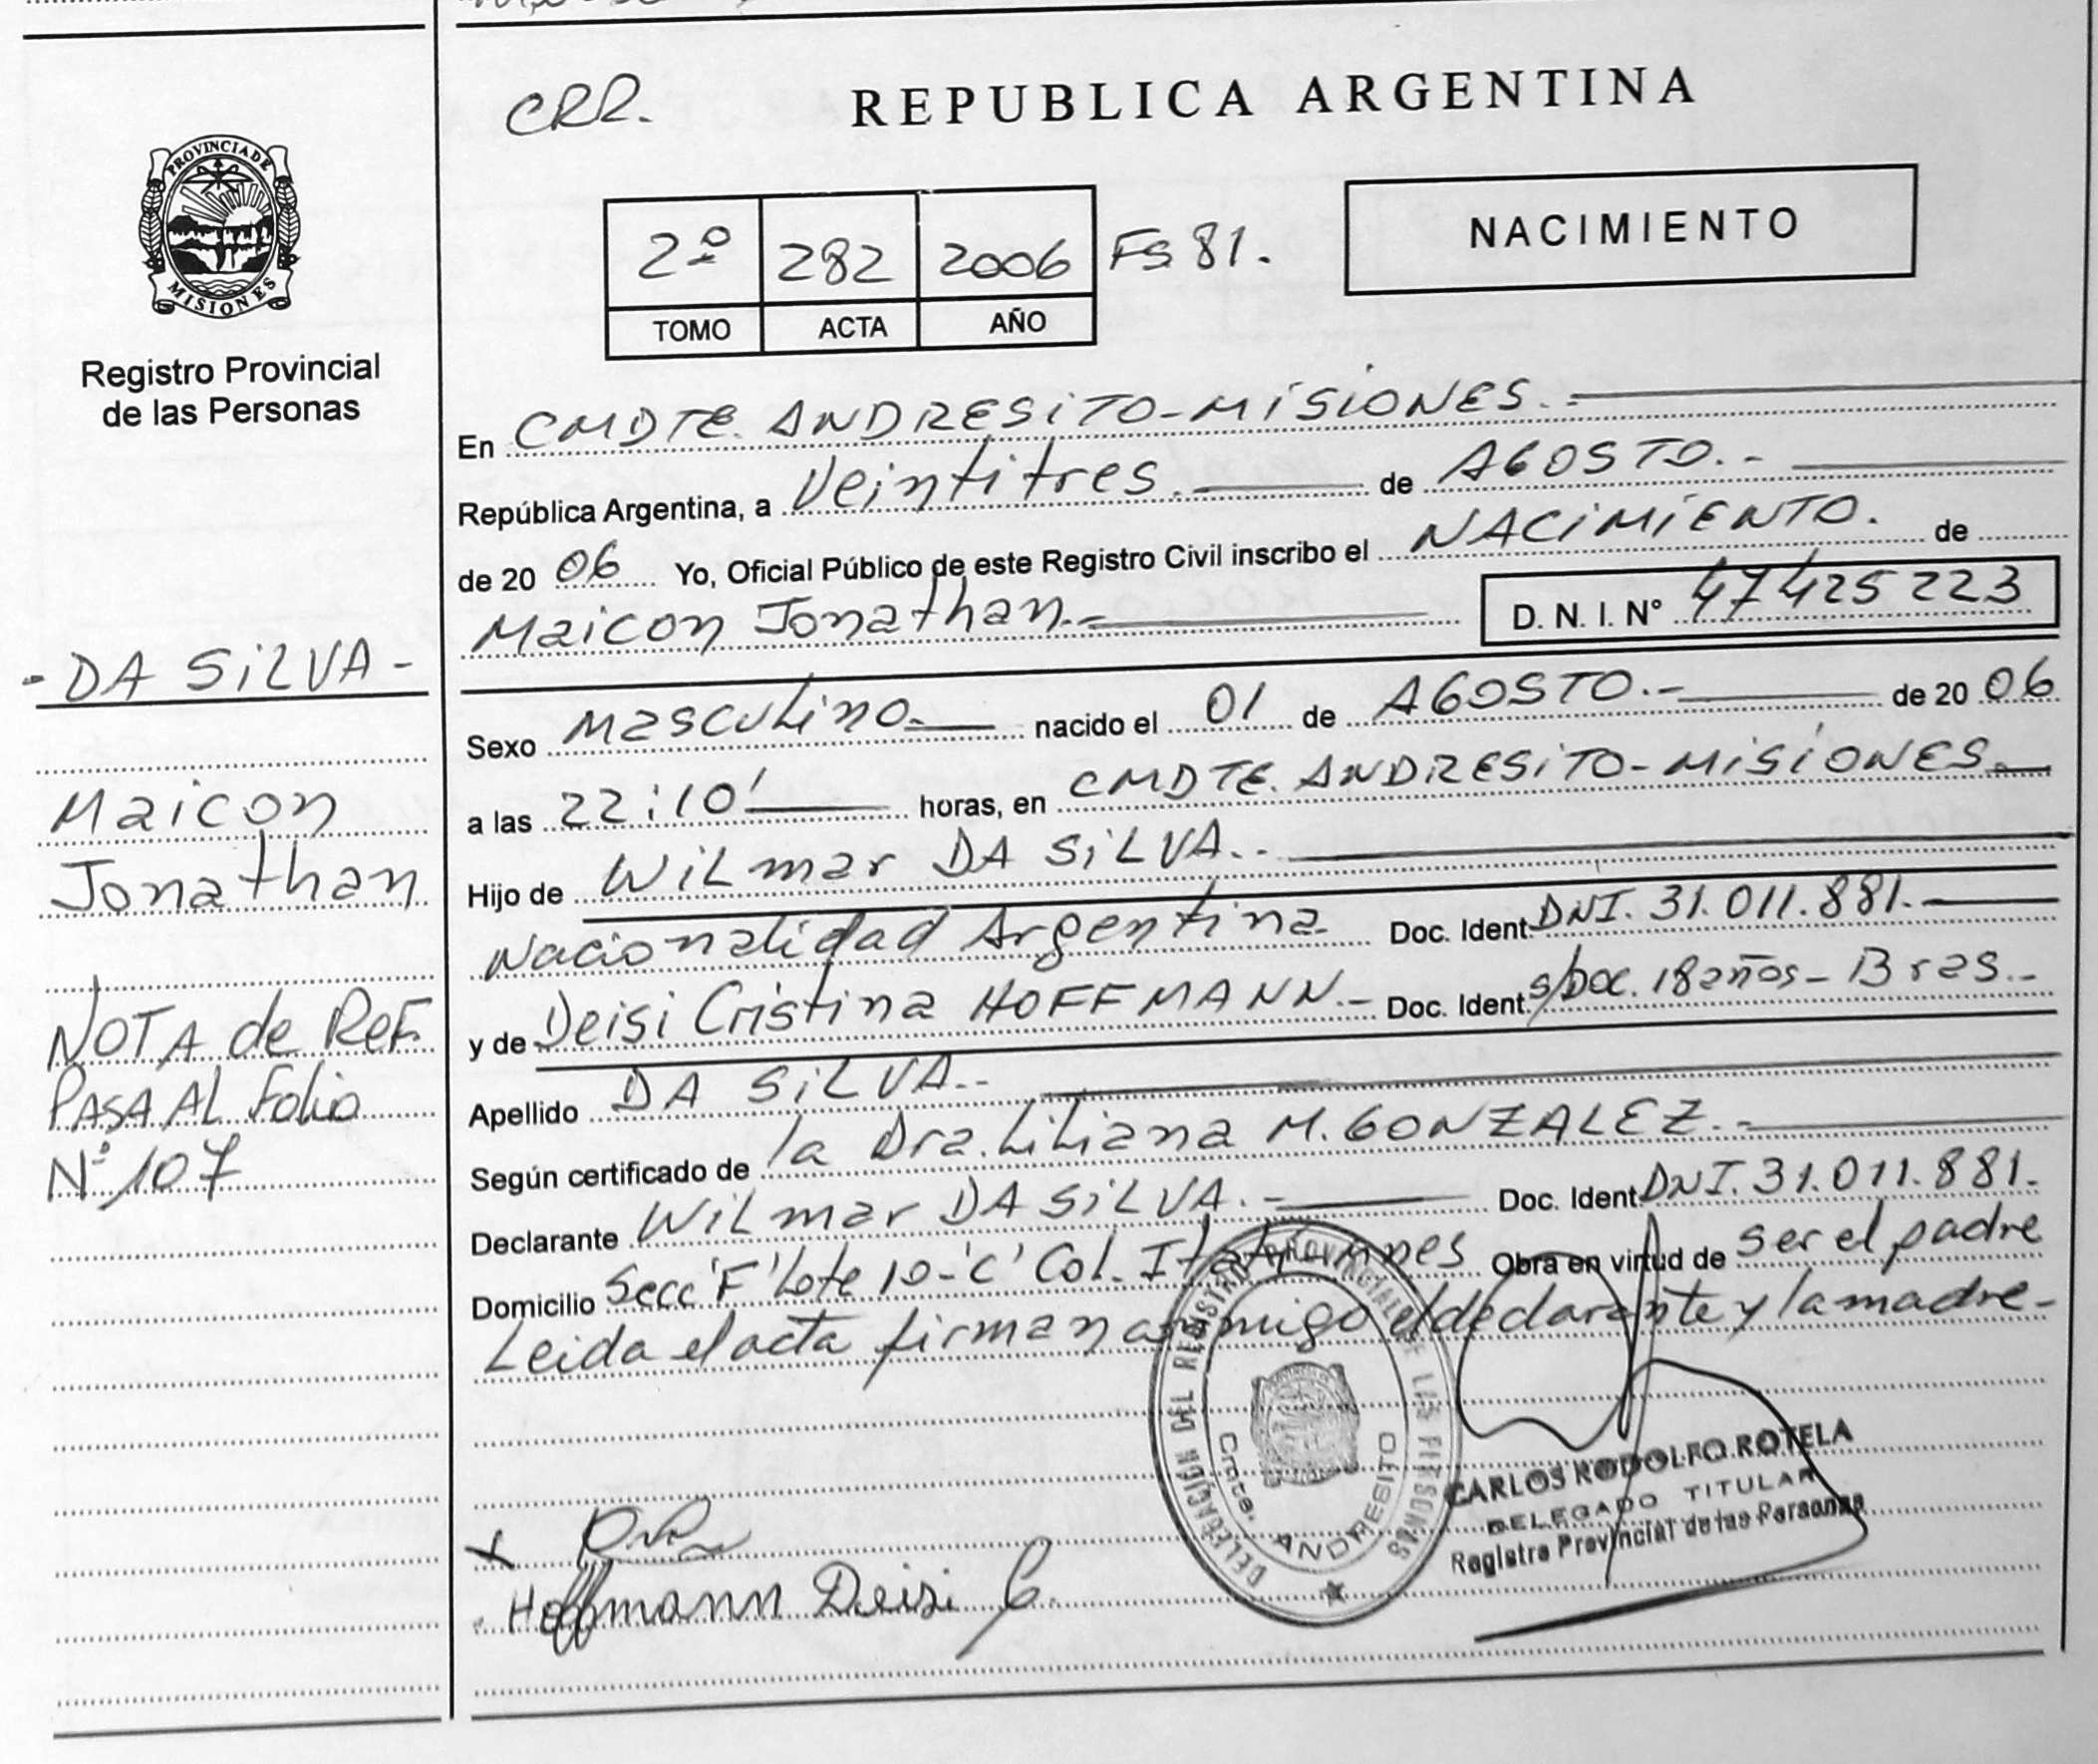 PROVINCIA DE
MISIONES
Registro Provincial
de las Personas
- DA SiLVA -
Maicon
Jonathan
NOTA de REF.
PASA AL Folio
N° 107
CRR.
REPUBLICA ARGENTINA
2º 282 2006 FS 81.
TOMO ACTA AÑO
NACIMIENTO
En CMDTE. ANDRESiTO-MiSiONES.-
República Argentina, a Veintitres. de AGOSTO.-
de 20 06 Yo, Oficial Público de este Registro Civil inscribo el NACiMiENTO. de
Maicon Jonathan.- D. N. I. N° 47425223
Sexo Masculino nacido el 01 de AGOSTO.- de 20 06
a las 22:10' horas, en CMDTE. ANDRESiTO-MiSiONES.
Hijo de WiLmar DA SiLVA.-
Nacionalidad Argentina Doc. Ident. DNI. 31.011.881.
y de Deisi Cristina HOFFMANN.- Doc. Ident. s/Doc. 18 años - Bras.-
Apellido DA SiLVA.-
Según certificado de la Dra. Liliana M. GONZALEZ.-
Declarante WiLmar DA SiLVA.- Doc. Ident. DNI. 31.011.881.
Domicilio Secc 'F' Lote 10-'C' Col. Itati Mnes Obra en virtud de ser el padre
Leida el acta firman conmigo el declarante y la madre-
DELEGACION DEL REGISTRO PROVINCIAL DE LAS PERSONAS
Cmte. ANDRESITO
CARLOS RODOLFO ROTELA
DELEGADO TITULAR
Registro Provincial de las Personas
Hoffmann Deisi C.